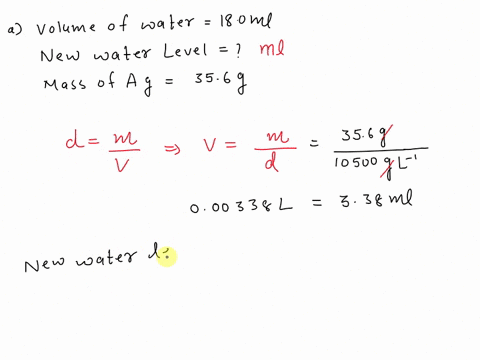 a) Volume of water = 18.0 ml
New water Level = ? ml
Mass of Ag = 35.6 g
d = m/V ⇒ V = m/d = 35.6 g / 10500 g L⁻¹
0.00338 L = 3.38 ml
New water l